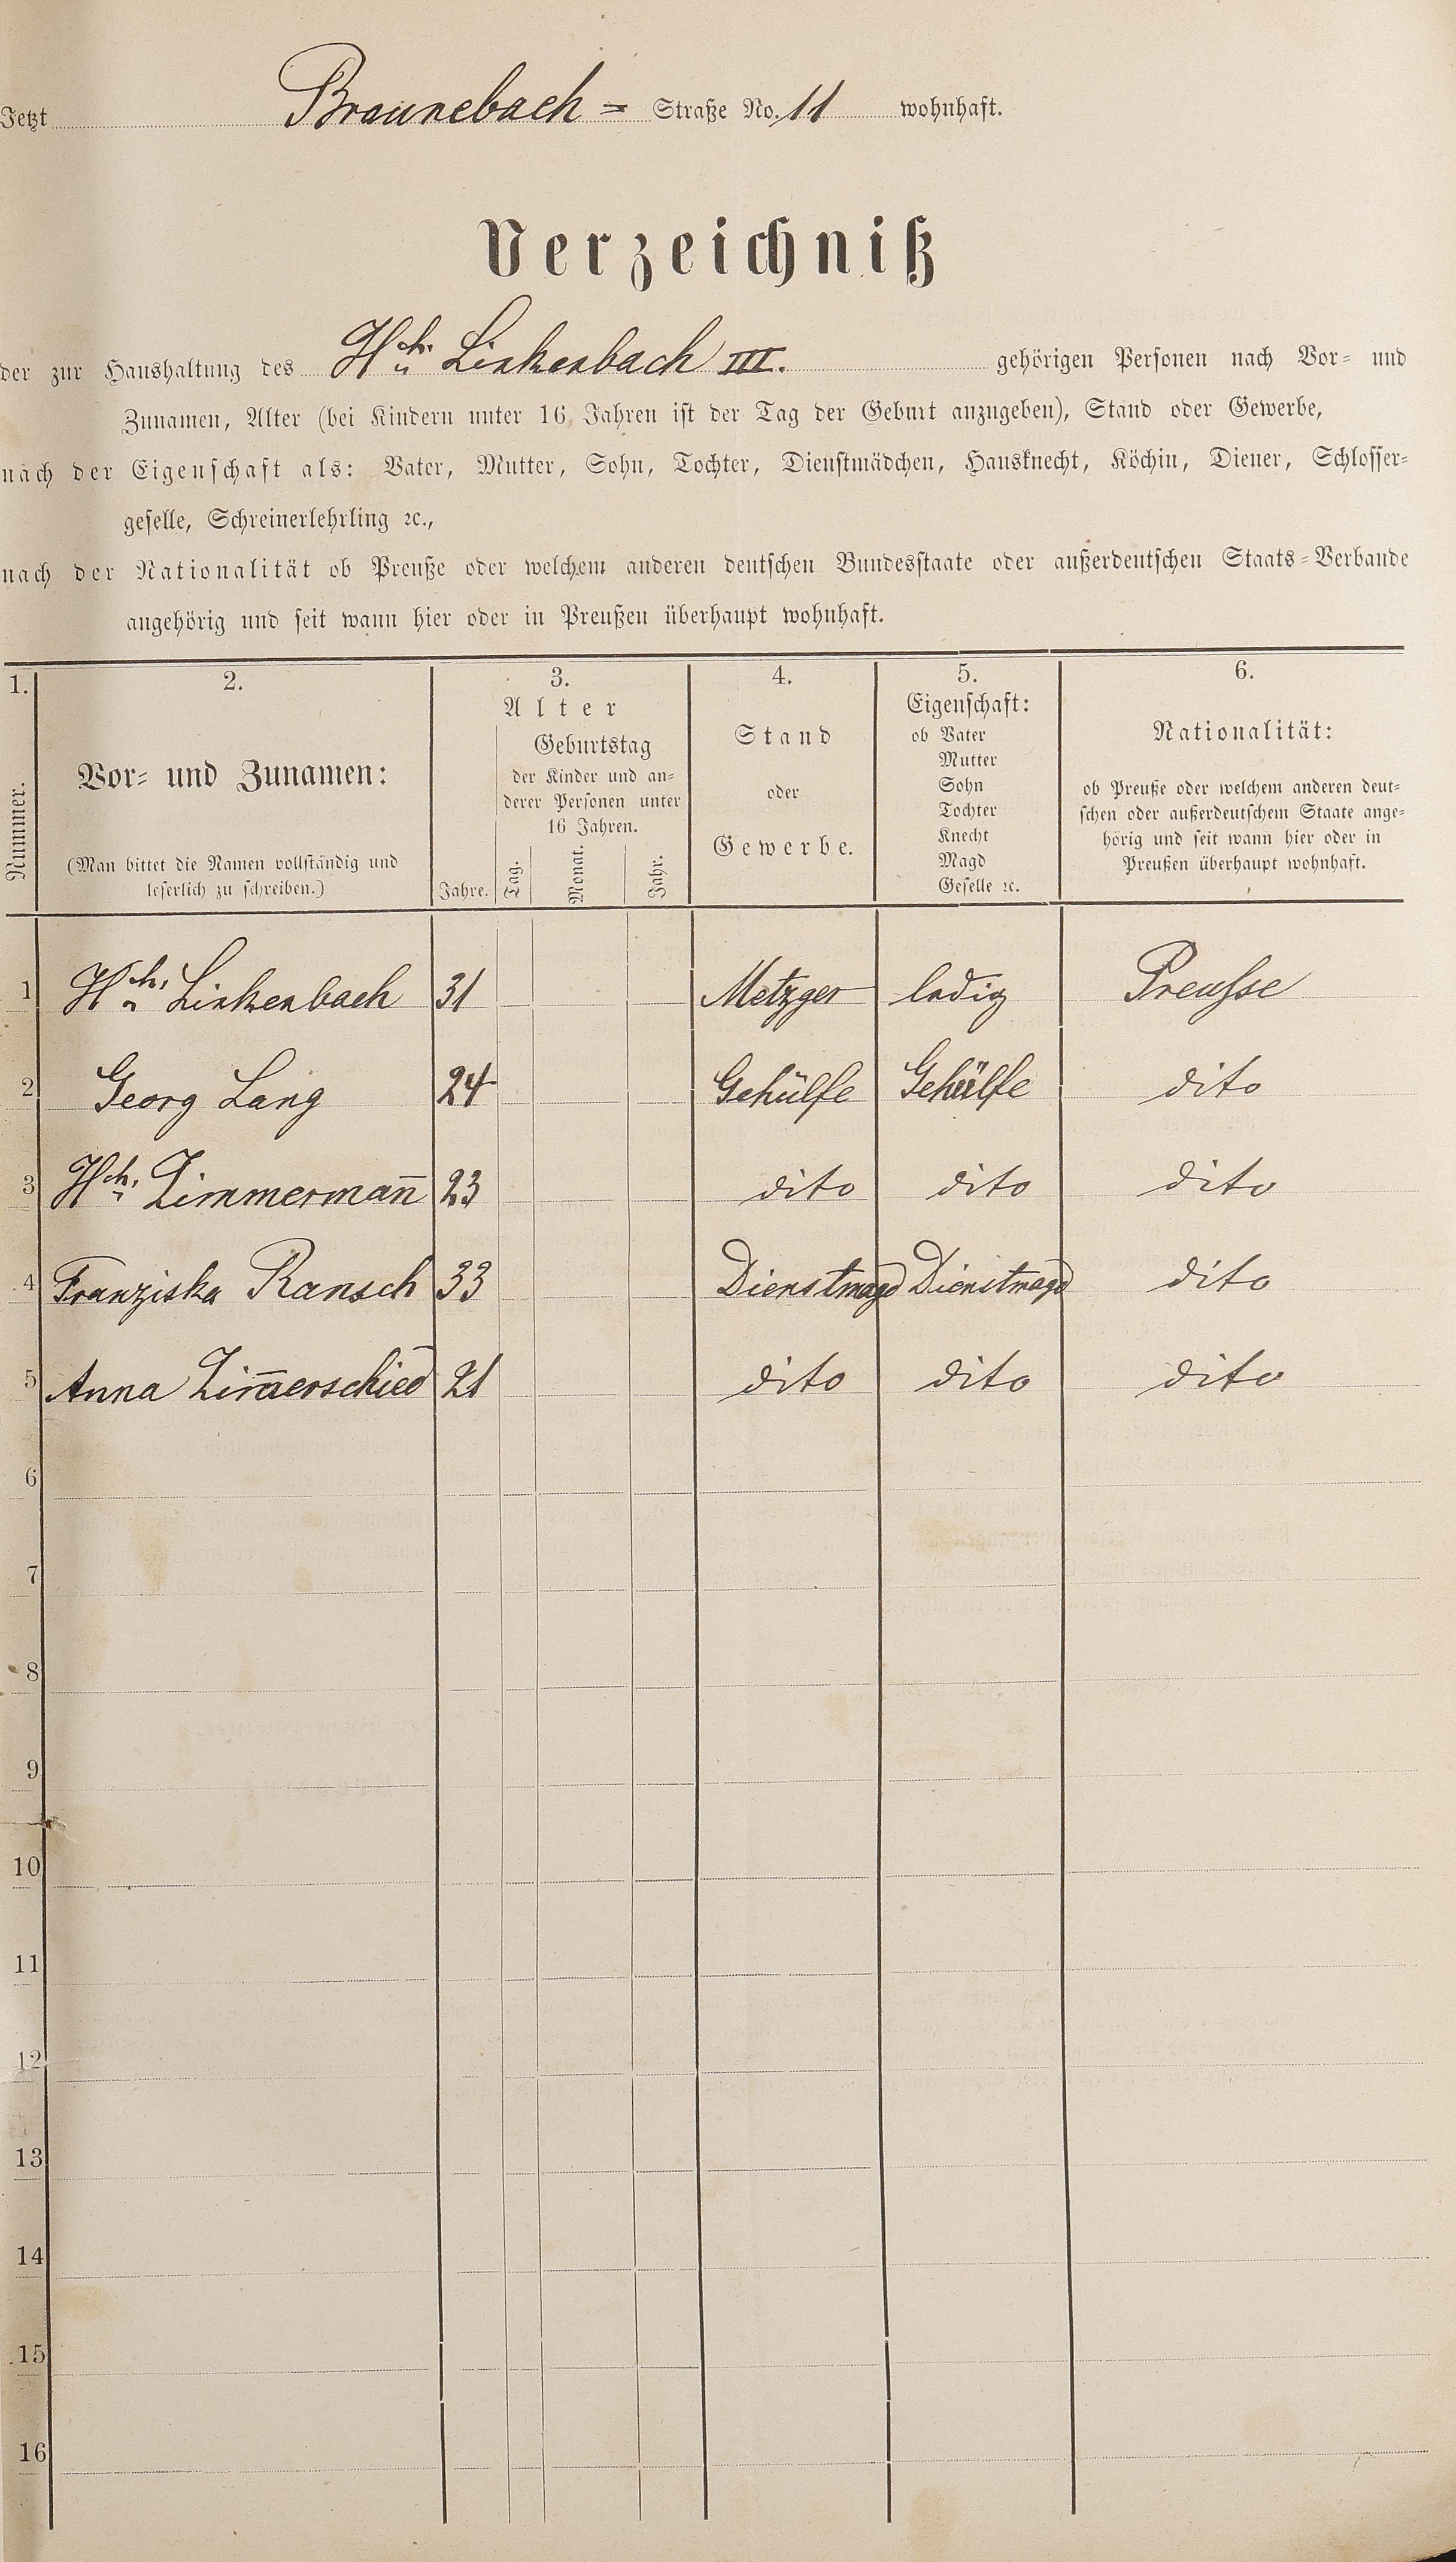 Jetzt Braunebach= Straße No. 11 wohnhaft.
Verzeichniß
der zur Haushaltung des Hch. Linkenbach III. gehörigen Personen nach Vor= und
Zunamen, Alter (bei Kindern unter 16 Jahren ist der Tag der Geburt anzugeben), Stand oder Gewerbe,
nach der Eigenschaft als: Vater, Mutter, Sohn, Tochter, Dienstmädchen, Hausknecht, Köchin, Diener, Schlosser=
geselle, Schreinerlehrling ꝛc.,
nach der Nationalität ob Preuße oder welchem anderen deutschen Bundesstaate oder außerdeutschen Staats=Verbande
angehörig und seit wann hier oder in Preußen überhaupt wohnhaft.
1.
Nummer.
2.
Vor= und Zunamen:
(Man bittet die Namen vollständig und
leserlich zu schreiben.)
3.
Alter
Jahre.
Geburtstag
der Kinder und an=
derer Personen unter
16 Jahren.
Tag.
Monat.
Jahr.
4.
Stand
oder
Gewerbe.
5.
Eigenschaft:
ob Vater
Mutter
Sohn
Tochter
Knecht
Magd
Geselle ꝛc.
6.
Nationalität:
ob Preuße oder welchem anderen deut=
schen oder außerdeutschem Staate ange=
hörig und seit wann hier oder in
Preußen überhaupt wohnhaft.
1 Hch. Linkenbach 31 Metzger ledig Preusse
2 Georg Lang 24 Gehülfe Gehülfe dito
3 Hch. Zimmerman̄ 23 dito dito dito
4 Franziska Ransch 33 Dienstmagd Dienstmagd dito
5 Anna Zim̄erschied 21 dito dito dito
6
7
8
9
10
11
12
13
14
15
16